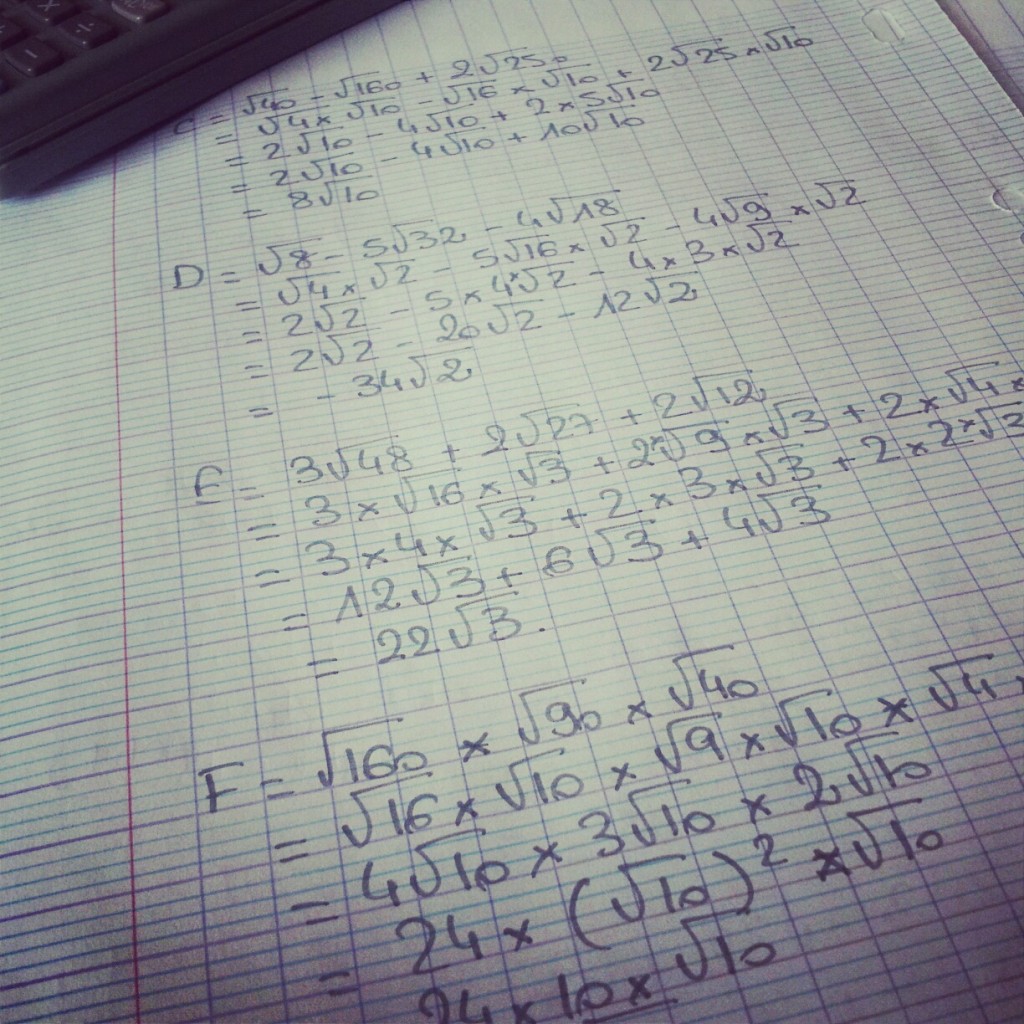 C = √40 - √160 + 2√250
= √4 × √10 - √16 × √10 + 2√25 × √10
= 2√10 - 4√10 + 2 × 5√10
= 2√10 - 4√10 + 10√10
= 8√10
D = √8 - 5√32 - 4√18
= √4 × √2 - 5√16 × √2 - 4√9 × √2
= 2√2 - 5 × 4×√2 - 4 × 3 × √2
= 2√2 - 20√2 - 12√2
= - 34√2
E = 3√48 + 2√27 + 2√12
= 3 × √16 × √3 + 2×√9 × √3 + 2 × √4 ×
= 3 × 4 × √3 + 2 × 3 × √3 + 2 × 2×√3
= 12√3 + 6√3 + 4√3
= 22√3.
F = √160 × √90 × √40
= √16 × √10 × √9 × √10 × √4
= 4√10 × 3√10 × 2√10
= 24 × (√10)² × √10
24 × 10 × √10